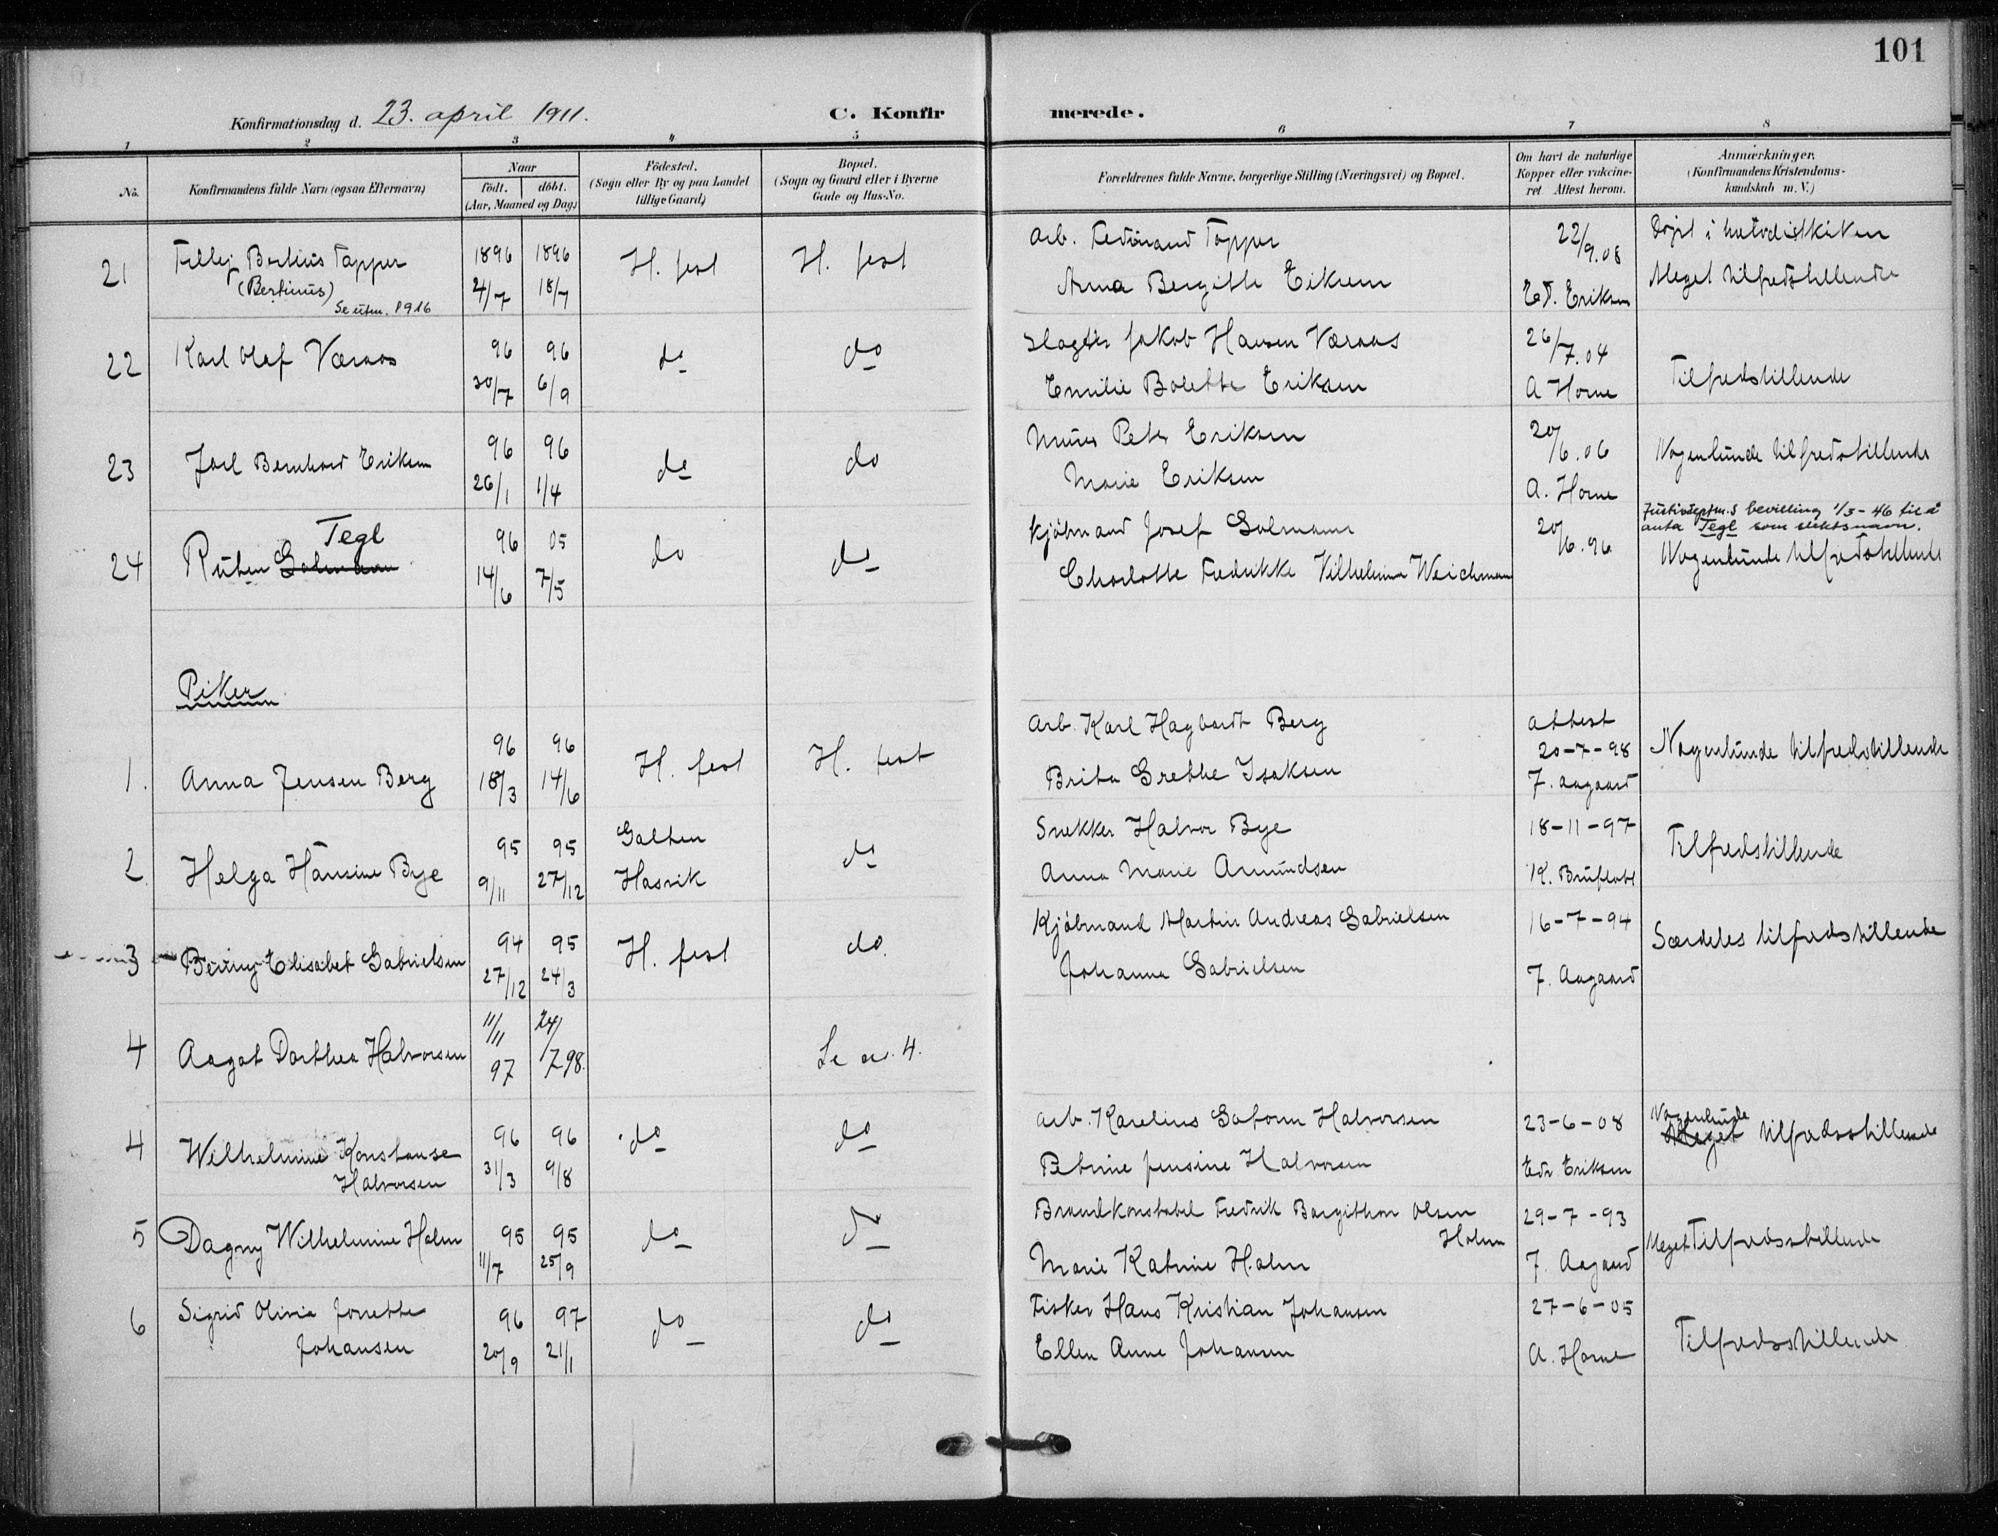 101
Konfirmationsdag d. 23. april 1911.
C. Konfirmerede.
1 2 3 4 5 6 7 8
No.
Konfirmandens fulde Navn (ogsaa Efternavn)
Naar
födt. döbt.
(Aar, Maaned og Dag.)
Födested.
(Sogn eller By og paa Landet
tillige Gaard)
Bopæl.
(Sogn og Gaard eller i Byerne
Gade og Hus-No.
Forældrenes fulde Navne, borgerlige Stilling (Næringsvei) og Bopæl.
Om havt de naturlige
Kopper eller vaccine-
ret Attest herom.
Anmærkninger.
(Konfirmandens Kristendoms-
kundskab m. V.)
21 Bertius Tapper 1896 1896 H. fest H. fest Arb. Ferdinand Tapper 22/9.08
(Bertinus) 24/7 18/7 Anna Bergitte Eiksen Ed. Eriksen Meget tilfredstillende
Se utm. 1916
22 Karl Olaf Væraas 96 96 do do Slagter Jakob Hansen Væraas 26/7.04 Tilfredstillende
30/7 6/9 Emilie Bolette Eriksen A Horne
23 Jarl Bernhard Eriksen 96 96 do do Murer Peter Eriksen 20/6.06 Nogenlunde tilfredstillende
26/1 1/4 Marie Eriksen A. Horne
Tegl
24 Ruben Salmann 96 05 do do Kjöbmand Josef Salmann 20/6.96
14/6 7/5 Charlotte Fredrikke Vilhelmine Weichmann
Justisdeptm.s bevilling 1/3-46 til å
anta Tegl som slektsnavn.
Nogenlunde tilfredstillende
Piker
1. Anna Jensen Berg 96 96 H. fest H. fest Arb. Karl Hagbardt Berg attest
18/3 14/6 Brita Grethe Isaksen 20-7-98
F. Aagaard
Nogenlunde tilfredstillende
2 Helga Hansine Bye 95 95 Galten do Snekker Halvor Bye 18-11-97 Tilfredstillende
9/11 27/12 Hasvik Anna Marie Amundsen K. Bruflodt
3 Elisabet Gabrielsen 94 95 H. fest do. Kjöbmand Martin Andreas Gabrielsen 16-7-94 Særdeles tilfredstillende
27/12 24/3 Johanna Gabrielsen F. Aagaard
4 Aagot Dorthea Halvorsen 11/11 97 24/7 98. Se nr. 4.
4 Wilhelmine Konstanse 96 96 do do Arb. Karelius Halvorsen 23-6-08 Nogenlunde
Halvorsen 31/3 9/8 Petrine Jensine Halvorsen Edv Eriksen Meget tilfredsstillende
5 Dagny Wilhelmine Holm 95 95 do do Brandkonstabel Fredrik Bergithon Olsen 29-7-93 Meget Tilfredsstillende
Holm
11/7 25/9 Marie Katrine Holm F. Aagaard
6 Sigrid Olivia Jonette 96 97 do do Fisker Hans Kristian Johansen 27-6-05 Tilfredsstillende
Johansen 20/9 21/1 Ellen Anne Johansen A. Horne